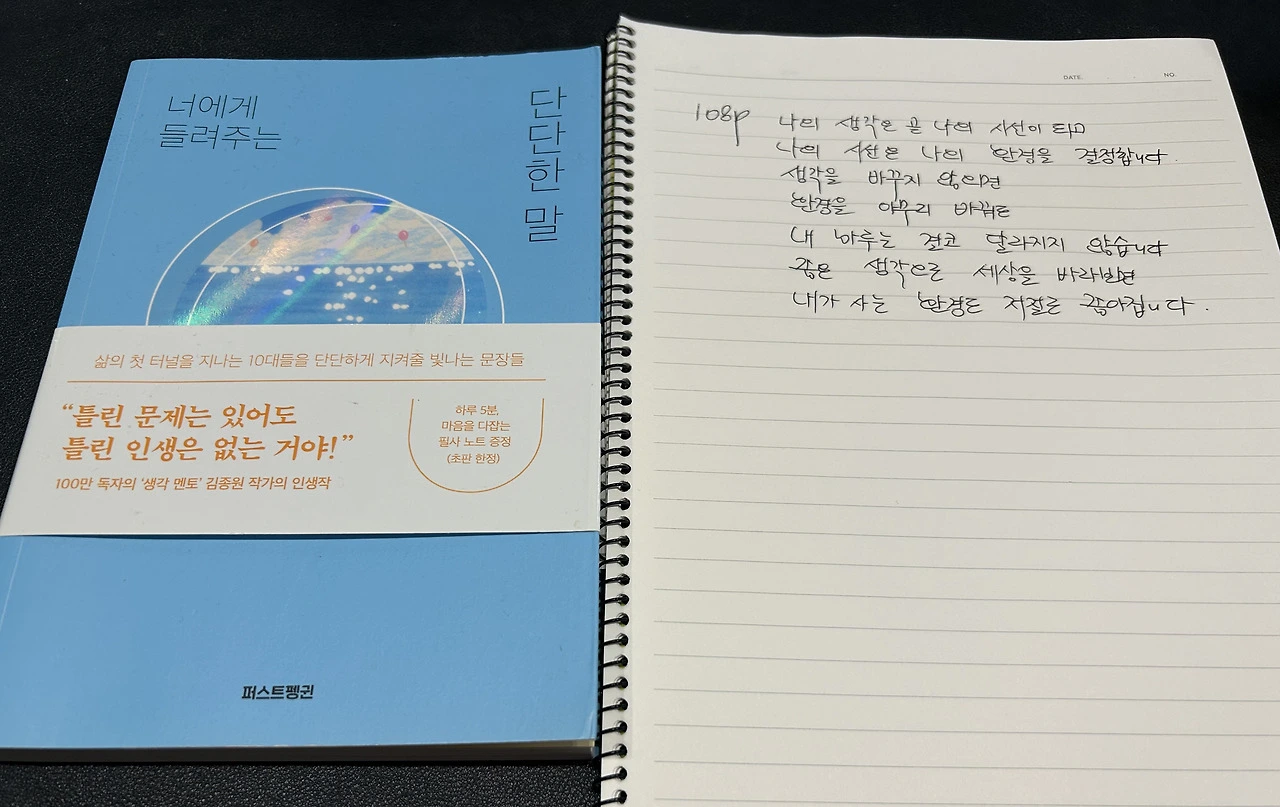 너에게
들려주는
단단한 말
삶의 첫 터널을 지나는 10대들을 단단하게 지켜줄 빛나는 문장들
“틀린 문제는 있어도
틀린 인생은 없는 거야!”
100만 독자의 ‘생각 멘토’ 김종원 작가의 인생작
하루 5분,
마음을 다잡는
필사 노트 증정
(초판 한정)
퍼스트펭귄
DATE.
NO.
108p 나의 생각은 곧 나의 시선이 되고
나의 시선은 나의 환경을 결정합니다.
생각을 바꾸지 않으면
환경을 아무리 바꿔도
내 하루는 결코 달라지지 않습니다
좋은 생각으로 세상을 바라보면
내가 사는 환경도 저절로 좋아집니다.